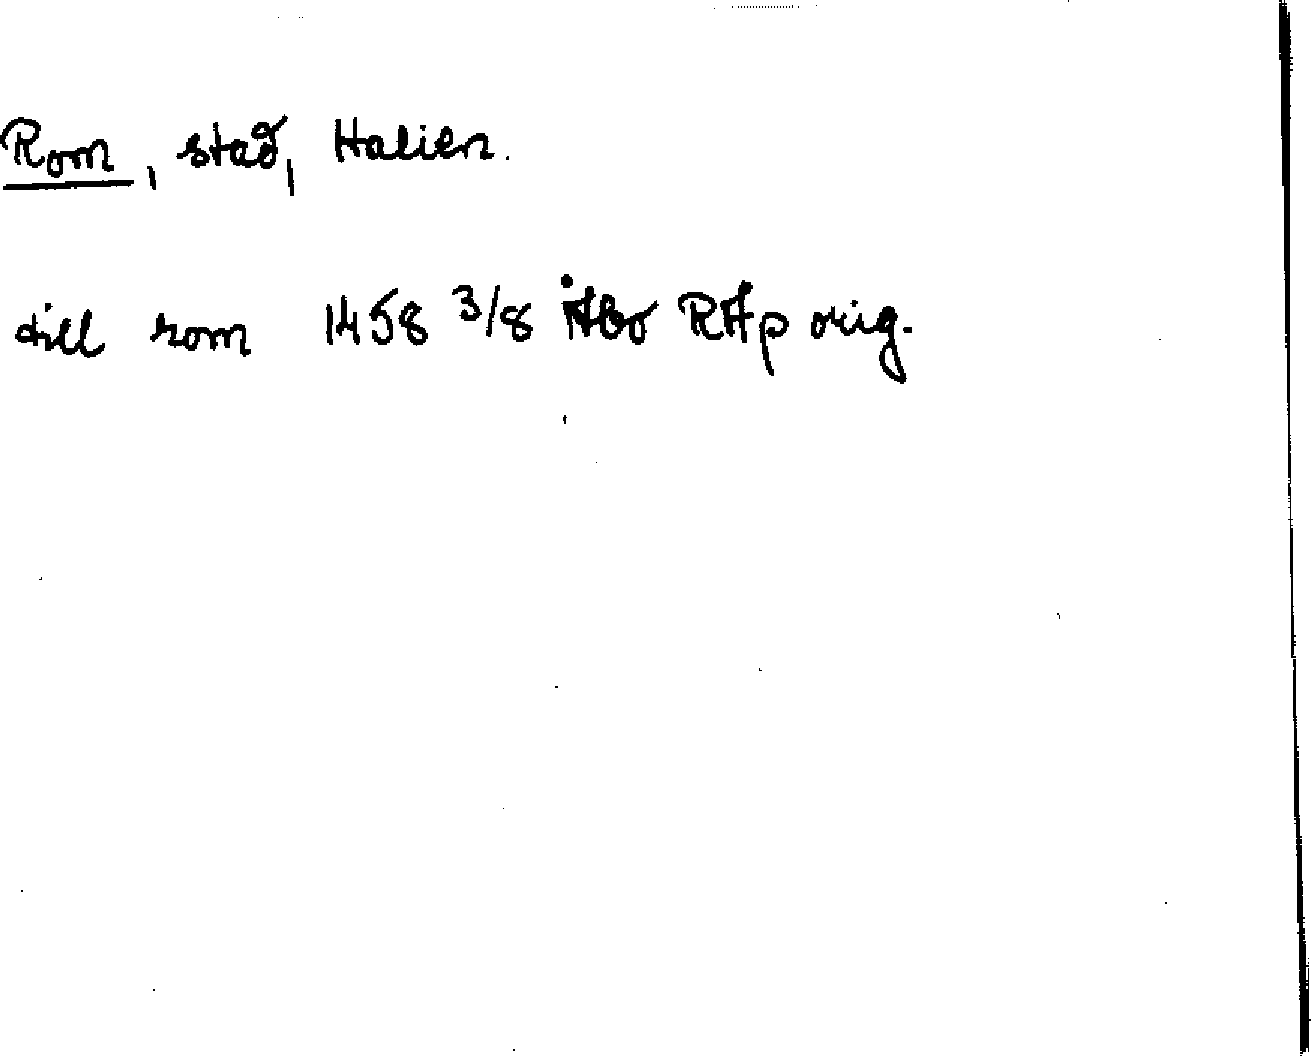 Rom, stad, Italien.
till rom 1458 3/8 Åbo RAp orig.